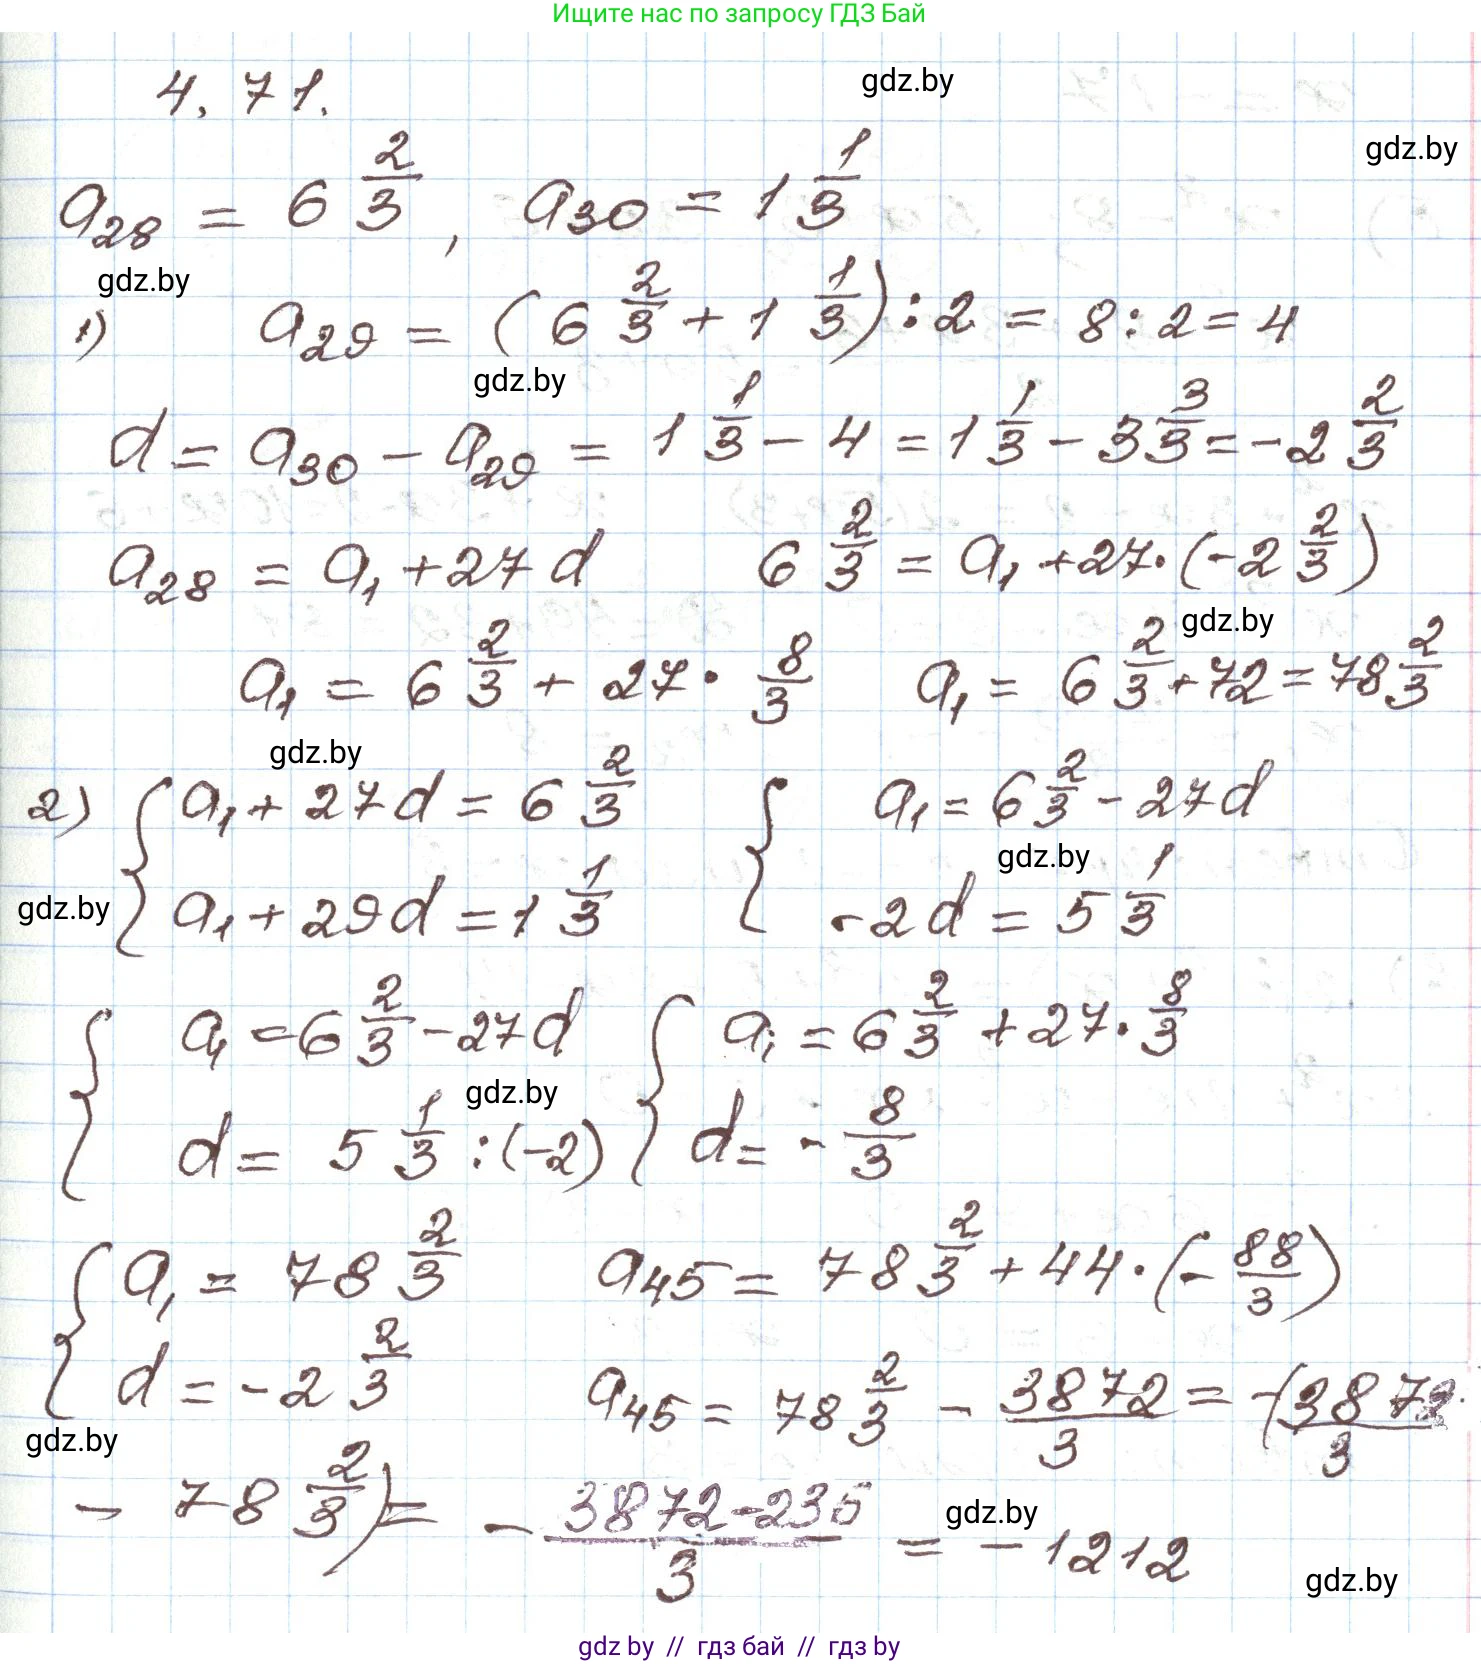 Ищите нас по запросу ГДЗ Бай
4.71.
gdz.by
gdz.by
a₂₈ = 6 2/3, a₃₀ = 1 1/3
gdz.by
1) a₂₉ = (6 2/3 + 1 1/3) : 2 = 8 : 2 = 4
gdz.by
d = a₃₀ − a₂₉ = 1 1/3 − 4 = 1 1/3 − 3 3/3 = −2 2/3
a₂₈ = a₁ + 27d 6 2/3 = a₁ + 27·(−2 2/3)
gdz.by
a₁ = 6 2/3 + 27 · 8/3 a₁ = 6 2/3 + 72 = 78 2/3
gdz.by
2) { a₁ + 27d = 6 2/3 { a₁ = 6 2/3 − 27d
gdz.by
gdz.by
a₁ + 29d = 1 1/3 −2d = 5 1/3
{ a₁ = 6 2/3 − 27d { a₁ = 6 2/3 + 27 · 8/3
gdz.by
d = 5 1/3 : (−2) d = − 8/3
{ a₁ = 78 2/3 a₄₅ = 78 2/3 + 44 · (− 88/3)
d = −2 2/3 a₄₅ = 78 2/3 − 3872/3 = −(3872/3
gdz.by
− 78 2/3) = − 3872−236/3 = −1212
gdz.by
gdz.by
gdz by // гдз бай // гдз by